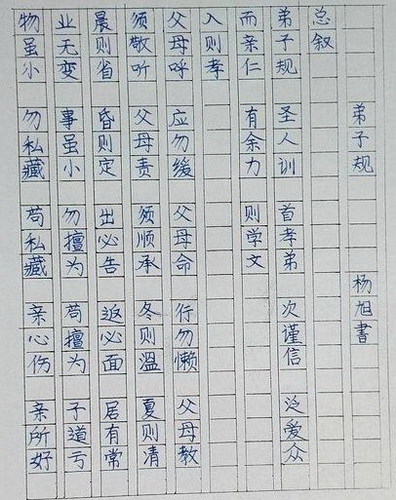 弟子规 杨旭書
总叙
弟子规 圣人训 首孝弟 次谨信 泛爱众
而亲仁 有余力 则学文
入则孝
父母呼 应勿缓 父母命 行勿懒 父母教
须敬听 父母责 须顺承 冬则溫 夏则凊
晨则省 昏则定 出必告 返必面 居有常
业无变 事虽小 勿擅为 苟擅为 子道亏
物虽小 勿私藏 苟私藏 亲心伤 亲所好